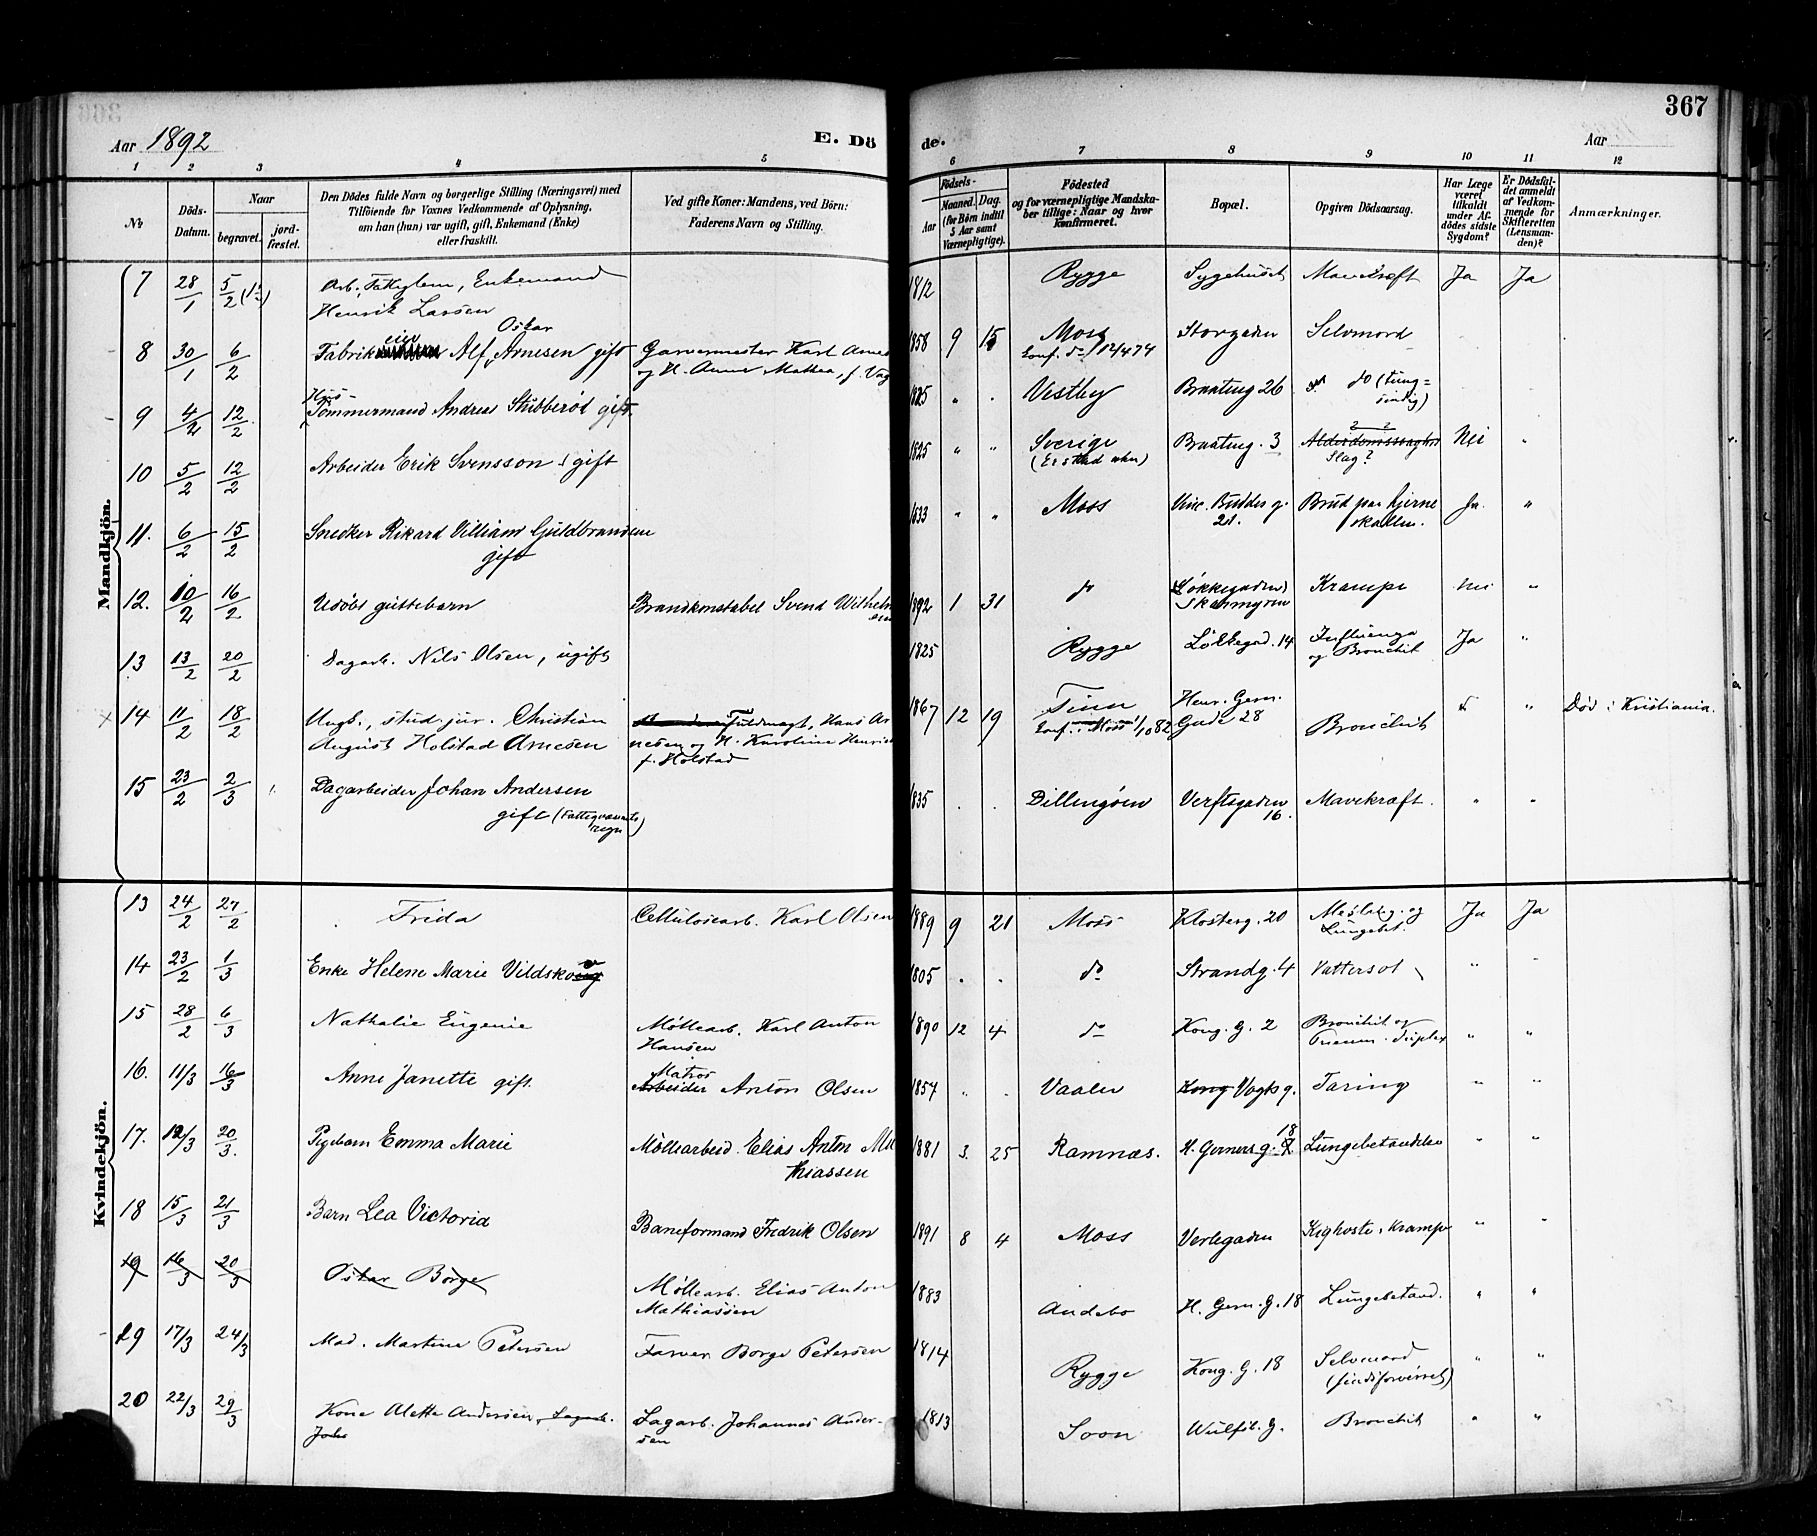 367
Aar 1892 E. Döde. Aar
1 2 3 4 5 6 7 8 9 10 11 12
№ Döds-Datum. Naar begravet. jordfæstet. Den Dödes fulde Navn og borgerlige Stilling (Næringsvei) med Tilföiende for Voxnes Vedkommende af Oplysning, om han (hun) var ugift, gift, Enkemand (Enke) eller fraskilt. Ved gifte Koner: Mandens, ved Börn: Faderens Navn og Stilling. Födsels- Aar Maaned. Dag. (for Börn indtil 5 Aar samt Værnepligtige). Födested og for værnepligtige Mandskaber tillige: Naar og hvor konfirmeret. Bopæl. Opgiven Dödsaarsag. Har Læge været tilkaldt under Afdödes sidste Sygdom? Er Dödsfaldet anmeldt af Vedkommende for Skifteretten (Lensmanden)? Anmærkninger.
Mandkjön.
7 28/1 5/2 Arb., Fattiglem, Enkemand 1812 Rygge Sygehuset Mavekræft Ja Ja
Henrik Larsen
8 30/1 6/2 Fabrikeier Alf Oskar Arnesen gift Garvermester Karl Arnes 1858 9 15 Moss Storgaden Selvmord
og H. Anne Mathea, f. Vog Conf. do 12/4 74
9 4/2 12/2 Hus-Tömmermand Andreas Stubberöd gift 1825 " . Vestby Braateng. 26 do (tungsindig)
10 5/2 12/2 Arbeider Erik Svensson gift 1825 " " Sverige Braateng. 3 Alderdomssvaghed Nei "
Slag?
11. 6/2 15/2 Snedker Rikard Villiam Guldbrandsen 1833 " " Moss Vinc. Buddes g. 21. Brud paa hjerneskallen. Ja "
gift
12. 10/2 16/2 Udöbt guttebarn Brandkonstabel Svend Wilhelmsen 1892 1 31 do Løkkegaden Skarmyren Krampe Nei "
13 13/2 20/2 Dagarb. Nils Olsen, ugift 1825 Rygge Løkkegad. 14 Influenza og Bronchit Ja "
14 11/2 18/2 Ungk., stud. jur. Christian Fuldmægt. Hans Ar 1867 12 19 Tinn Henr. Gern. Bronchit " " Död i Kristiania.
August Holstad Arnesen nesen og H. Karoline Henriette Conf. i Moss 1/10 82 Gade 28
f. Holstad
15 23/2 2/3 " Dagarbeider Johan Andersen 1835 . . Dillingöen Verftsgaden 16. Mavekræft. " "
gift (Fattigvæsenets regn)
Kvindekjön.
13 24/2 27/2 Frida Cellulosearb. Karl Olsen 1889 9 21 Moss Klosterg. 20 Mesling. og Lungebet. Ja Ja
14 23/2 1/3 Enke Helene Marie Vildskov 1805 . . do Strandg. 4 Vattersot " "
15 28/2 6/3 Nathalie Eugenie Møllearb. Karl Anton 1890 12 4 do Kong. G. 2 Bronchit og " "
Hansen Pneum. duplex
16. 11/3 16/3 Anne Janette gift. Matros Arbeider Anton Olsen 1854 " . Vaaler Kong Vogts g. Tæring " "
17. 12/3 20/3. Pigebarn Emma Marie Møllearbeid. Elias Anton Ma 1881 3. 25 Ramnæs. H. Gerners g. 18 Lungebetændelse " "
thiassen
18 15/3 21/3 Barn Lea Victoria Baneformand Fredrik Olsen 1891 8 4 Moss Verlegaden Kighoste, Krampe " "
19 16/3 20/3 Oskar Borge Møllearb. Elias Anton 1883 Andebo H. Gern. G. 18 Lungebetænd. " "
Mathiassen
19 17/3 24/3 Mad. Martine Petersen Farver Borge Petersen 1814 Rygge Kong. G. 18 Selvmord " "
(sindsforvirret)
20 22/3 29/3 Kone Alette Andersen, Dagarb. Dagarb. Johannes Ander- 1813 Soon Wulfsb. G. Bronchit " "
Joha sen